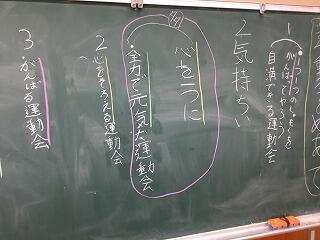 1 ・一つ一つのしゅもくを
がんばってやろう
自満できる運動会
2 気持ち
心を一つに
・全力で元気な運動会
2 心をそろえる運動会
3 ・がんばる運動会